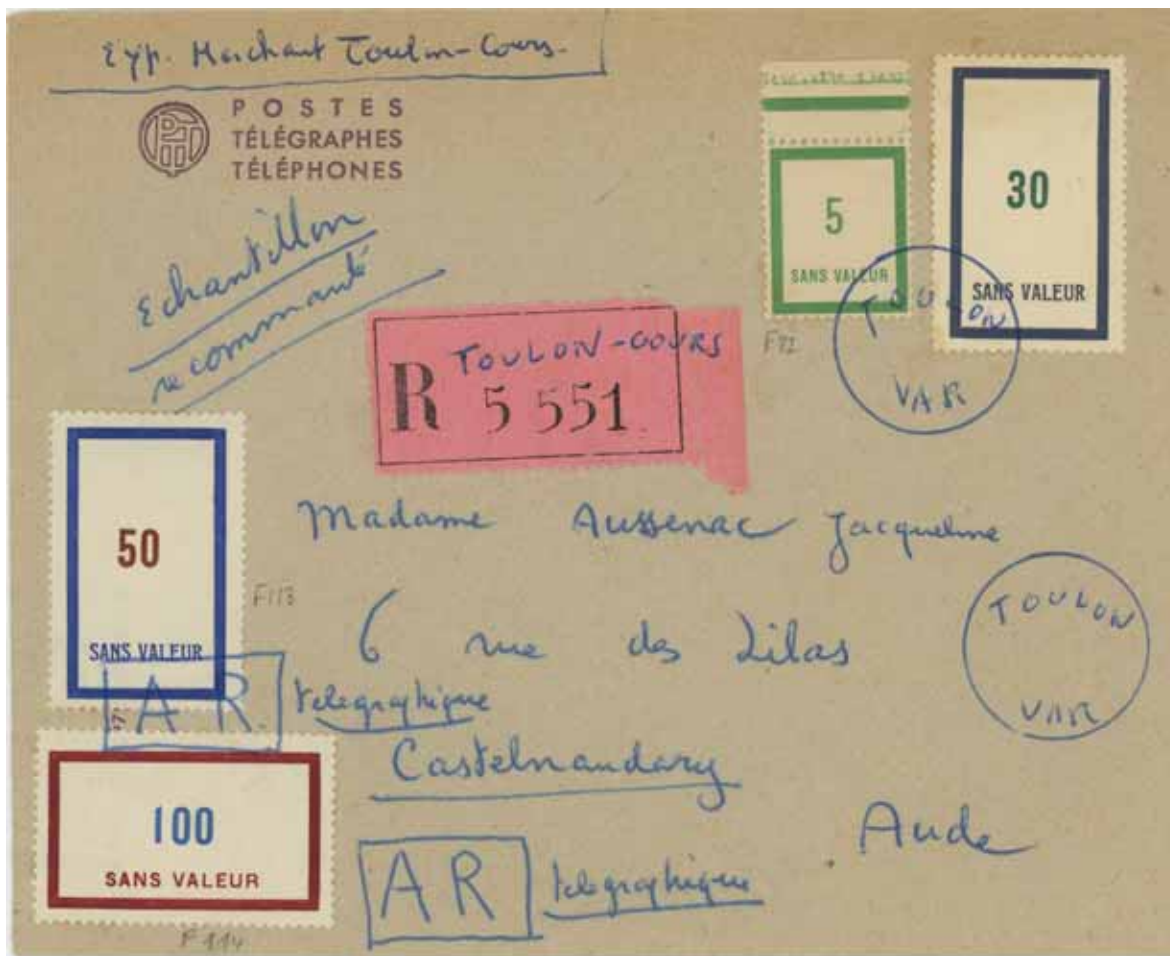 Exp. Marchant Toulon-Cours.
POSTES
TÉLÉGRAPHES
TÉLÉPHONES
Echantillon
recommandé
5
SANS VALEUR
30
SANS VALEUR
F72
TOULON
VAR
R TOULON-COURS
5 551
50
SANS VALEUR
F113
Madame Aussenac Jacqueline
6 rue des Lilas
TOULON
VAR
A R. telegraphique
Castelnaudary
100
SANS VALEUR
F114
Aude
A R telegraphique